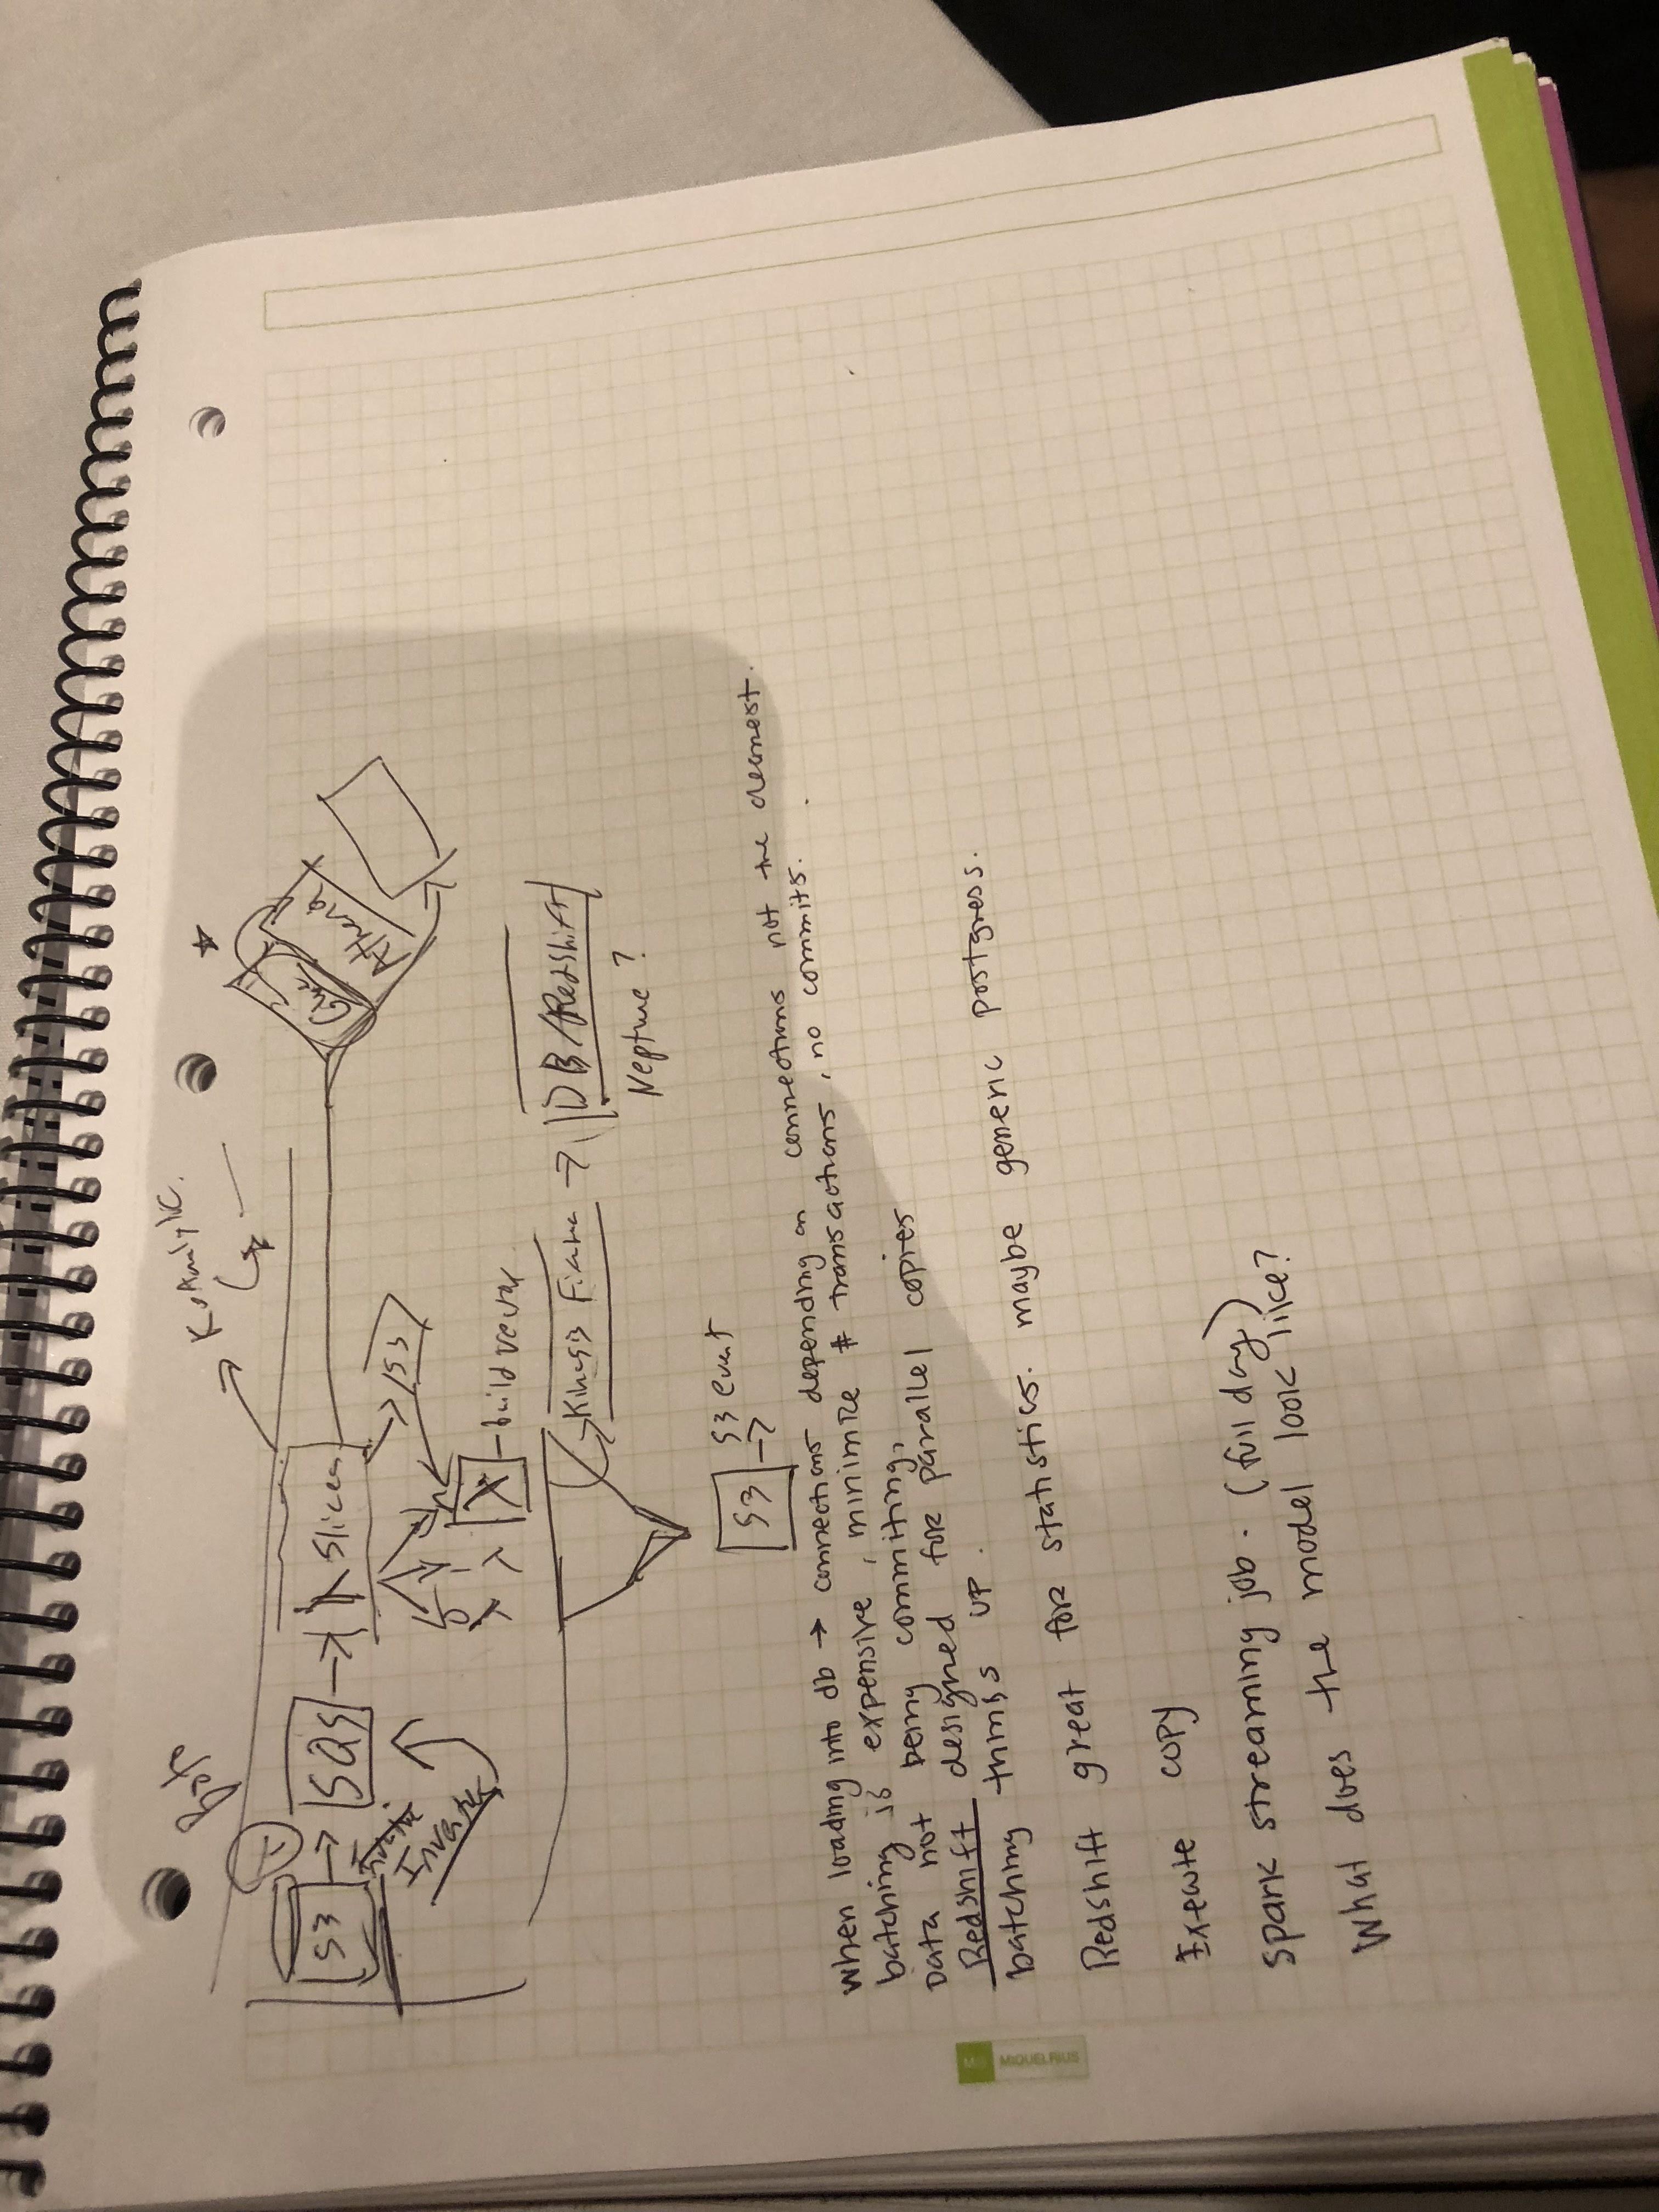 S3 → SQS → λ Slicer
→ S3
Glue
Athena
λ
Kinesis Firehose → DB/Redshift
Neptune?
S3 → S3 event
when loading into db → connections depending on connections not the dearnest.
batching is expensive, minimize # transactions, no commits.
Data not being commiting,
Redshift designed for parallel copies
batching things up.
Redshift great for statistics. maybe generic postgress.
Execute copy
Spark streaming job. (full day)
What does the model look like?
MIQUELRIUS